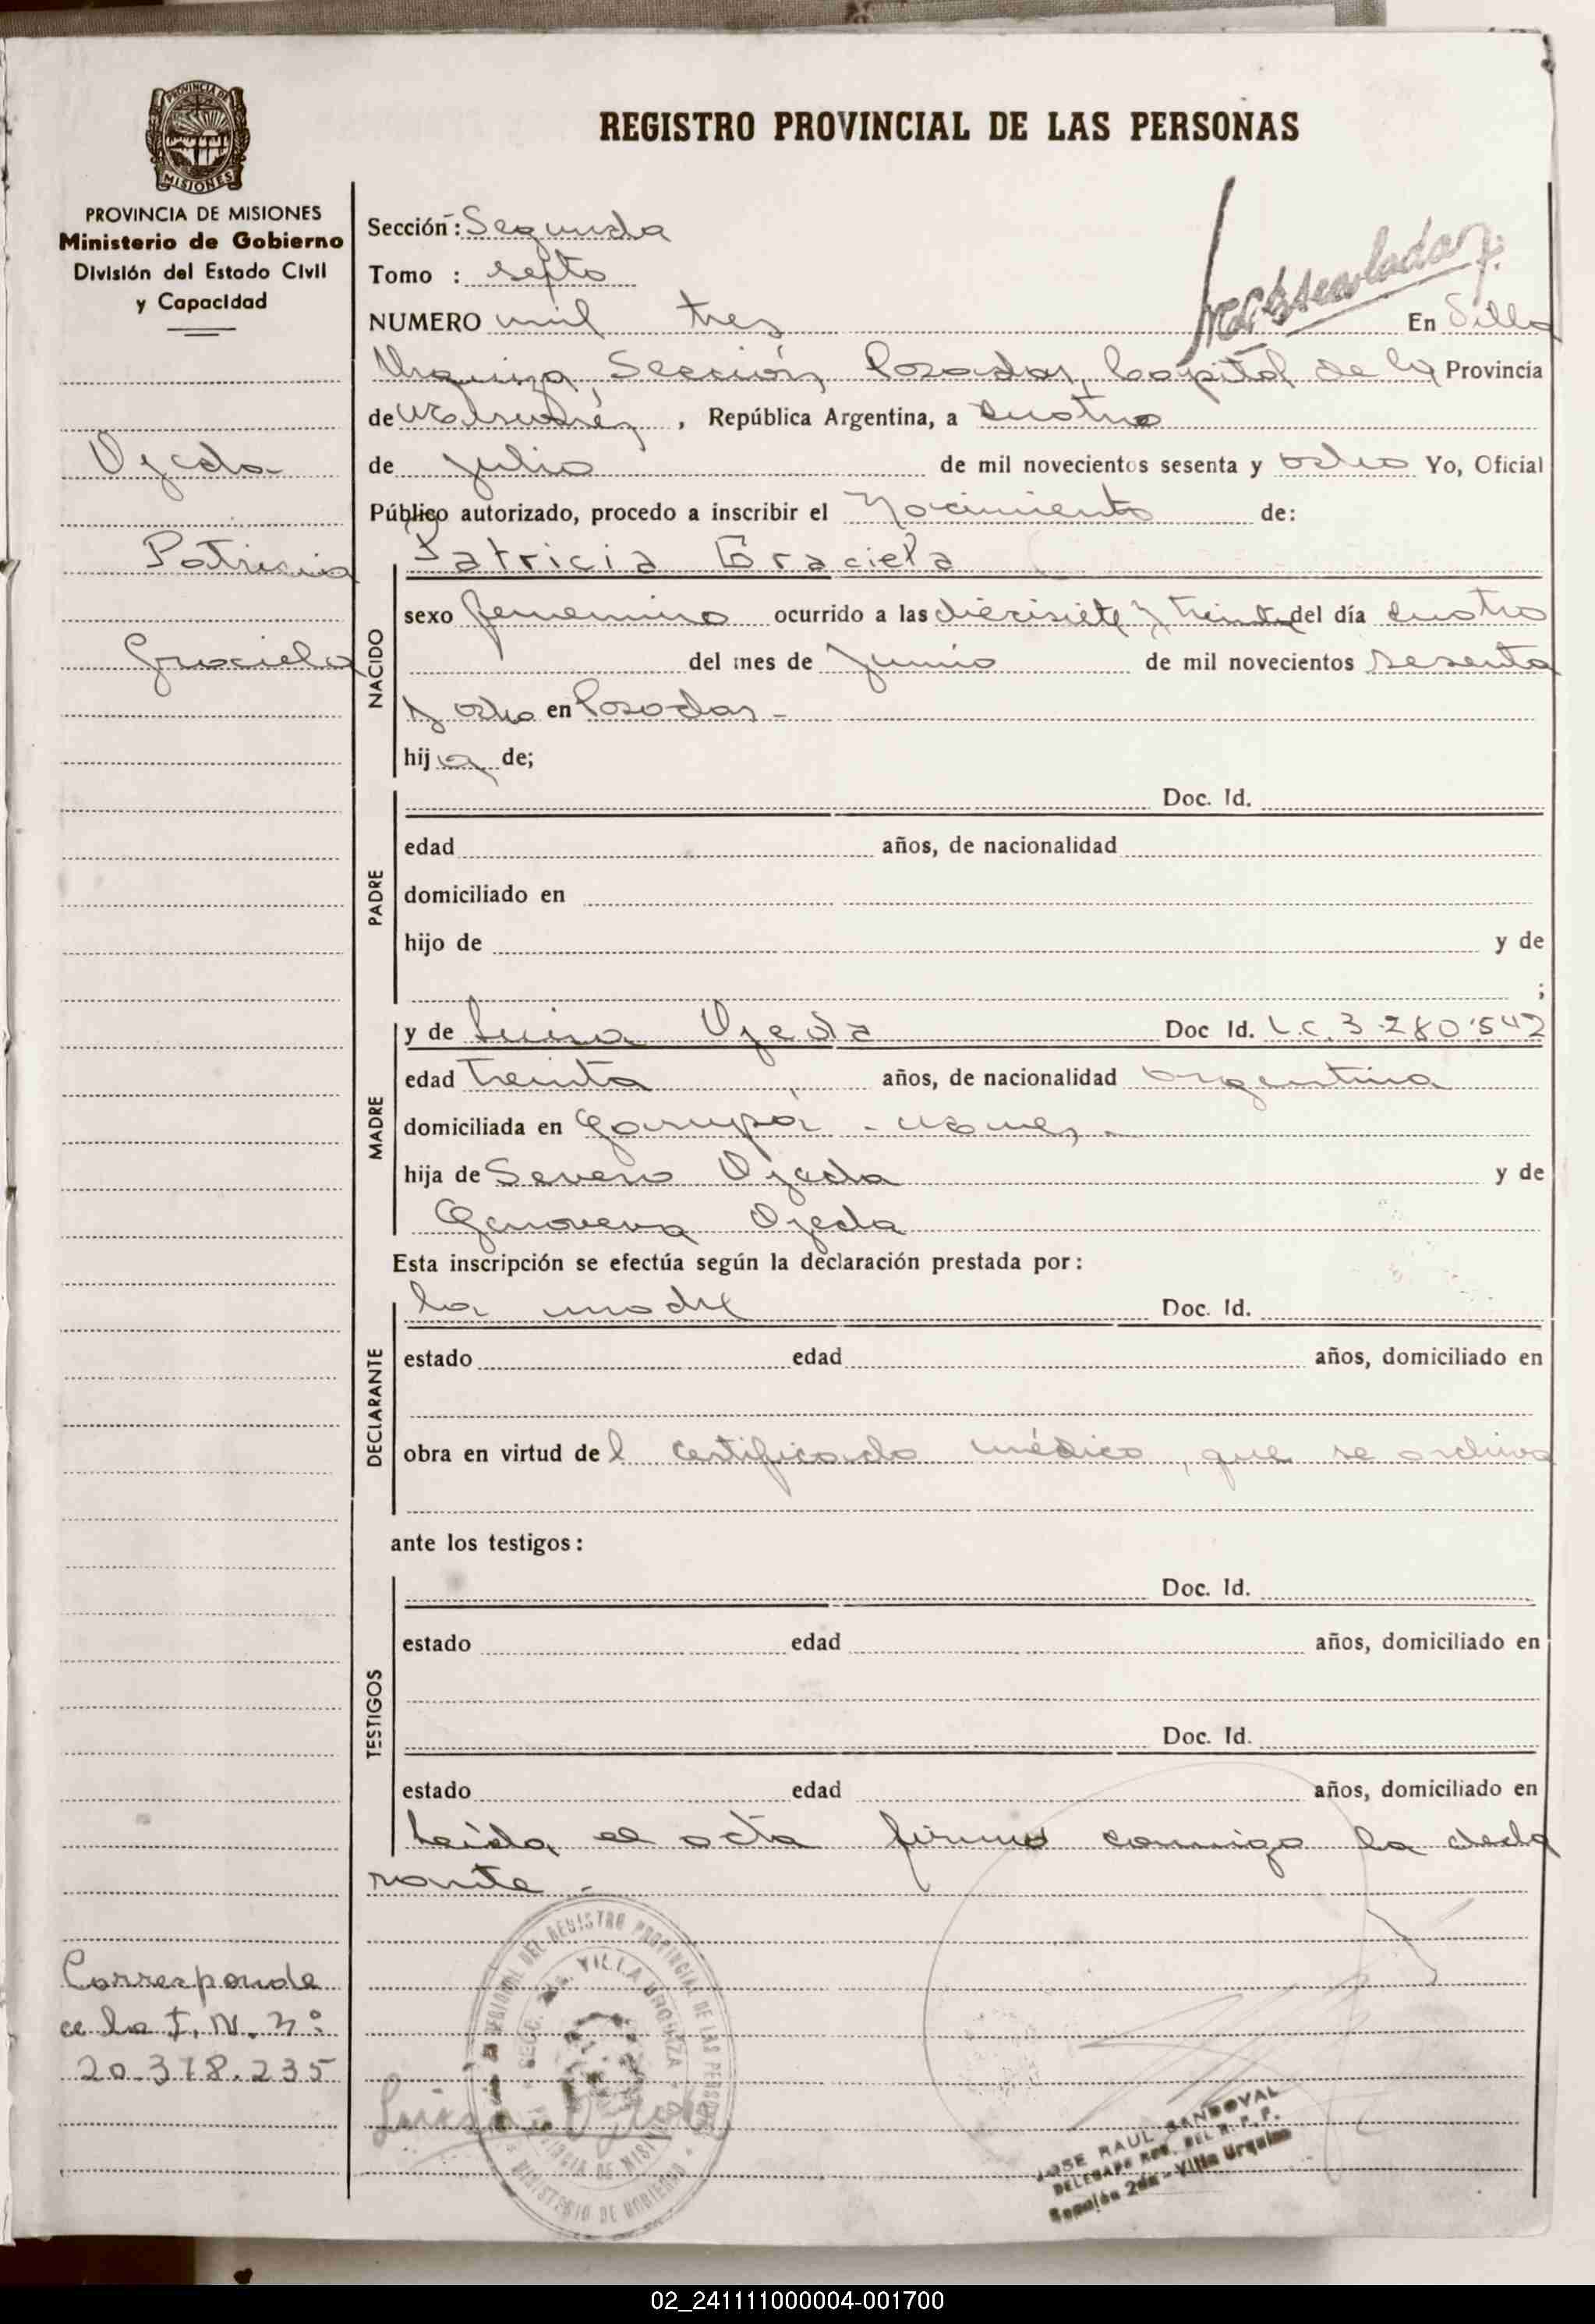 PROVINCIA DE MISIONES
REGISTRO PROVINCIAL DE LAS PERSONAS
PROVINCIA DE MISIONES
Ministerio de Gobierno
División del Estado Civil
y Capacidad
Sección: Segunda
Tomo : septo
NUMERO mil tres En Villa
Urquiza, Sección, Posadas, Capital de la Provincia
de Misiones, República Argentina, a cuatro
de julio de mil novecientos sesenta y ocho Yo, Oficial
Público autorizado, procedo a inscribir el Nacimiento de:
Ojeda
Patricia
Graciela
NACIDO
Patricia Graciela
sexo femenino ocurrido a las diecisiete y treinta del día cuatro
del mes de junio de mil novecientos sesenta
y ocho en Posadas.-
hija de;
PADRE
Doc. Id.
edad años, de nacionalidad
domiciliado en
hijo de y de
;
MADRE
y de Luisa Ojeda Doc Id. L.C. 3.280.542
edad treinta años, de nacionalidad argentina
domiciliada en Garupá -
hija de Severo Ojeda y de
Genoveva Ojeda
Esta inscripción se efectúa según la declaración prestada por:
DECLARANTE
la madre Doc. Id.
estado edad años, domiciliado en
obra en virtud del certificado médico, que se archiva
ante los testigos:
TESTIGOS
Doc. Id.
estado edad años, domiciliado en
Doc. Id.
estado edad años, domiciliado en
Leída el acta firma conmigo la decla
rante.-
Corresponde
a la I. N. nº
20.318.235
REGISTRO PROVINCIAL DE LAS PERSONAS
VILLA URQUIZA
PROVINCIA DE MISIONES
MINISTERIO DE GOBIERNO
Luisa Ojeda
JOSE RAUL SANDOVAL
DELEGADO REG. DEL R. P. P.
Sección 2da - Villa Urquiza
02_241111000004-001700